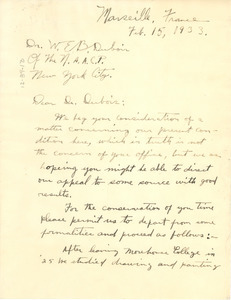 Marseille, France
Feb. 15, 1933.
Dr. W. E. B. Dubois
Of The N.A.A.C.P.
New York City.
Dear Dr. Dubois:
We beg your consideration of a
matter concerning our present con-
dition here, which in truth is not
the concern of your office, but we are
hoping you might be able to direct
our appeal to some source with good
results.
For the conservation of you time
please permit us to depart from some
formalities and proceed as follows:-
After leaving Morehouse College in
'25 we studied drawing and painting